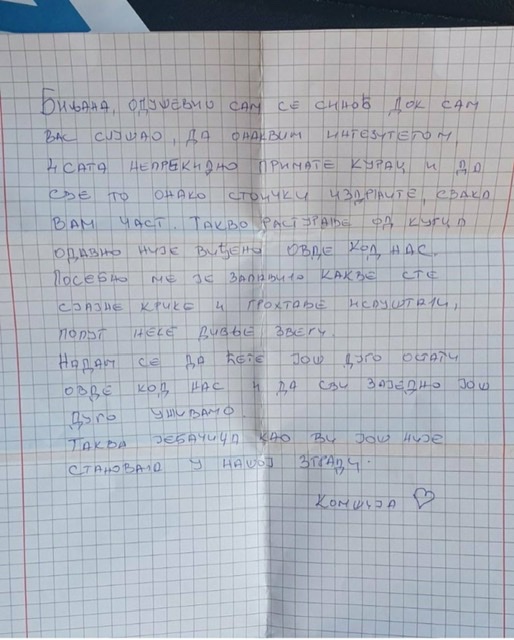 Биљана, одушевио сам се синоћ док сам
вас слушао, да онаквим интезитетом,
4 сата непрекидно примате курац и да
све то онако стоички издржите, свака
вам част. Такво растурање од курца
одавно није виђено овде код нас.
Посебно ме је запалило какве сте
сјајне крике и гроктање испуштали,
попут неке дивље звери.
Надам се да ћете још дуго остати
овде код нас и да сви заједно још
дуго уживамо.
Таква јебачица као ви још није
становала у нашој згради.
Комшија ♡